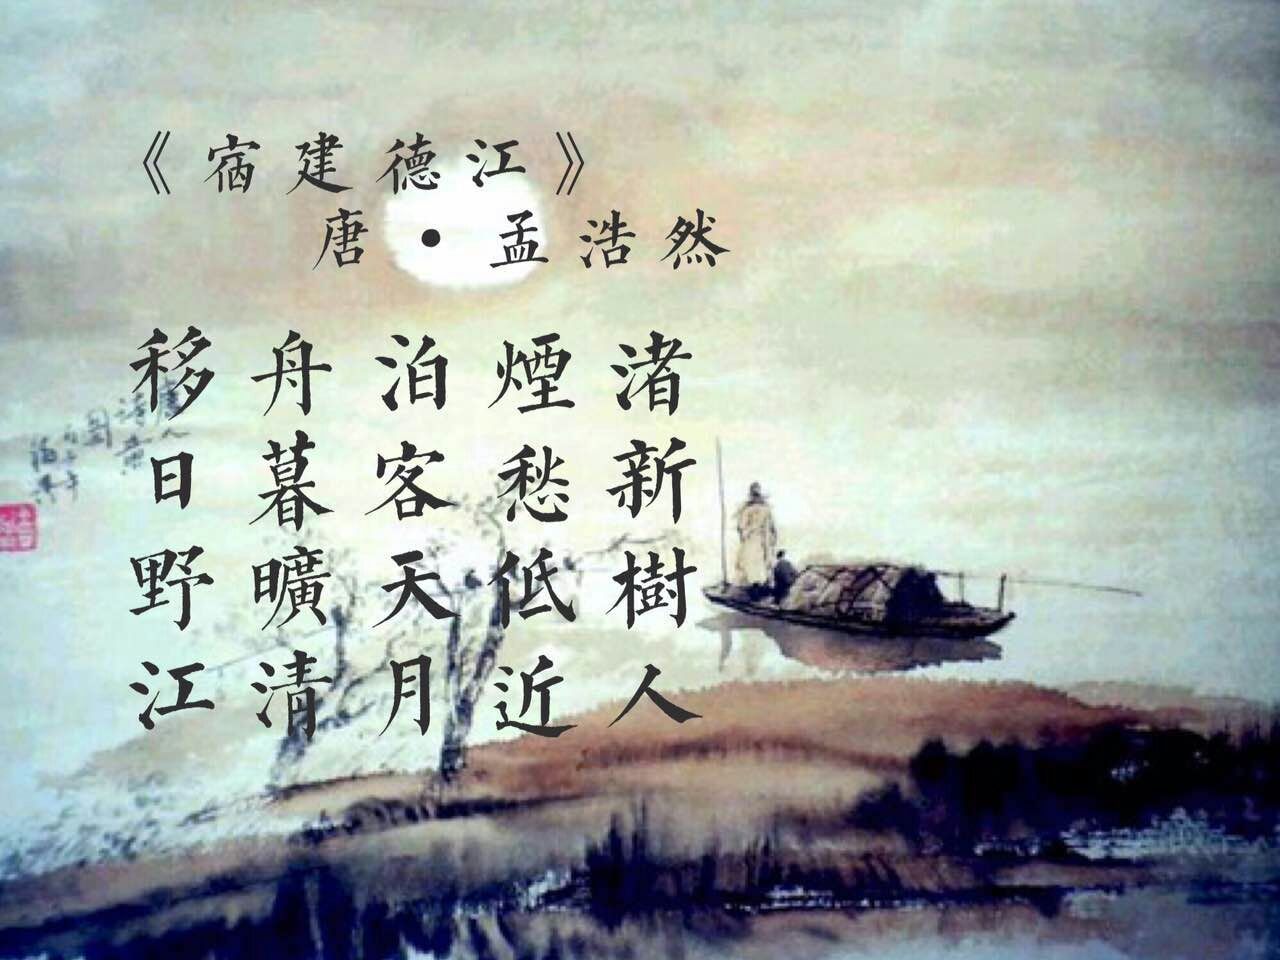 《宿建德江》
唐·孟浩然
移舟泊煙渚
日暮客愁新
野曠天低樹
江清月近人